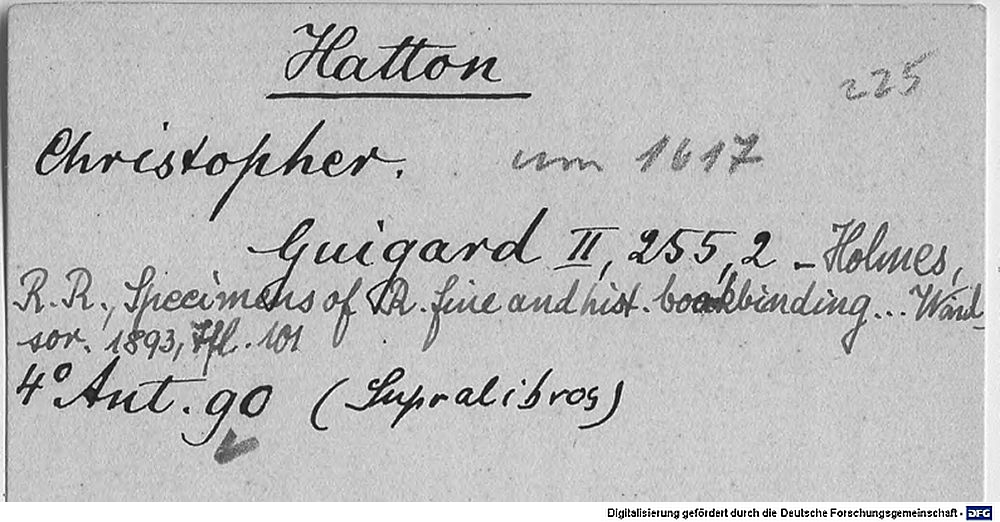 Hatton
225
Christopher. um 1617
Guigard II, 255,2 - Holmes,
R. R., Specimens of R. fine and hist. bookbinding... Wind-
sor. 1893, Tfl. 101
4° Ant. 90 (Supralibros)
Digitalisierung gefördert durch die Deutsche Forschungsgemeinschaft - DFG